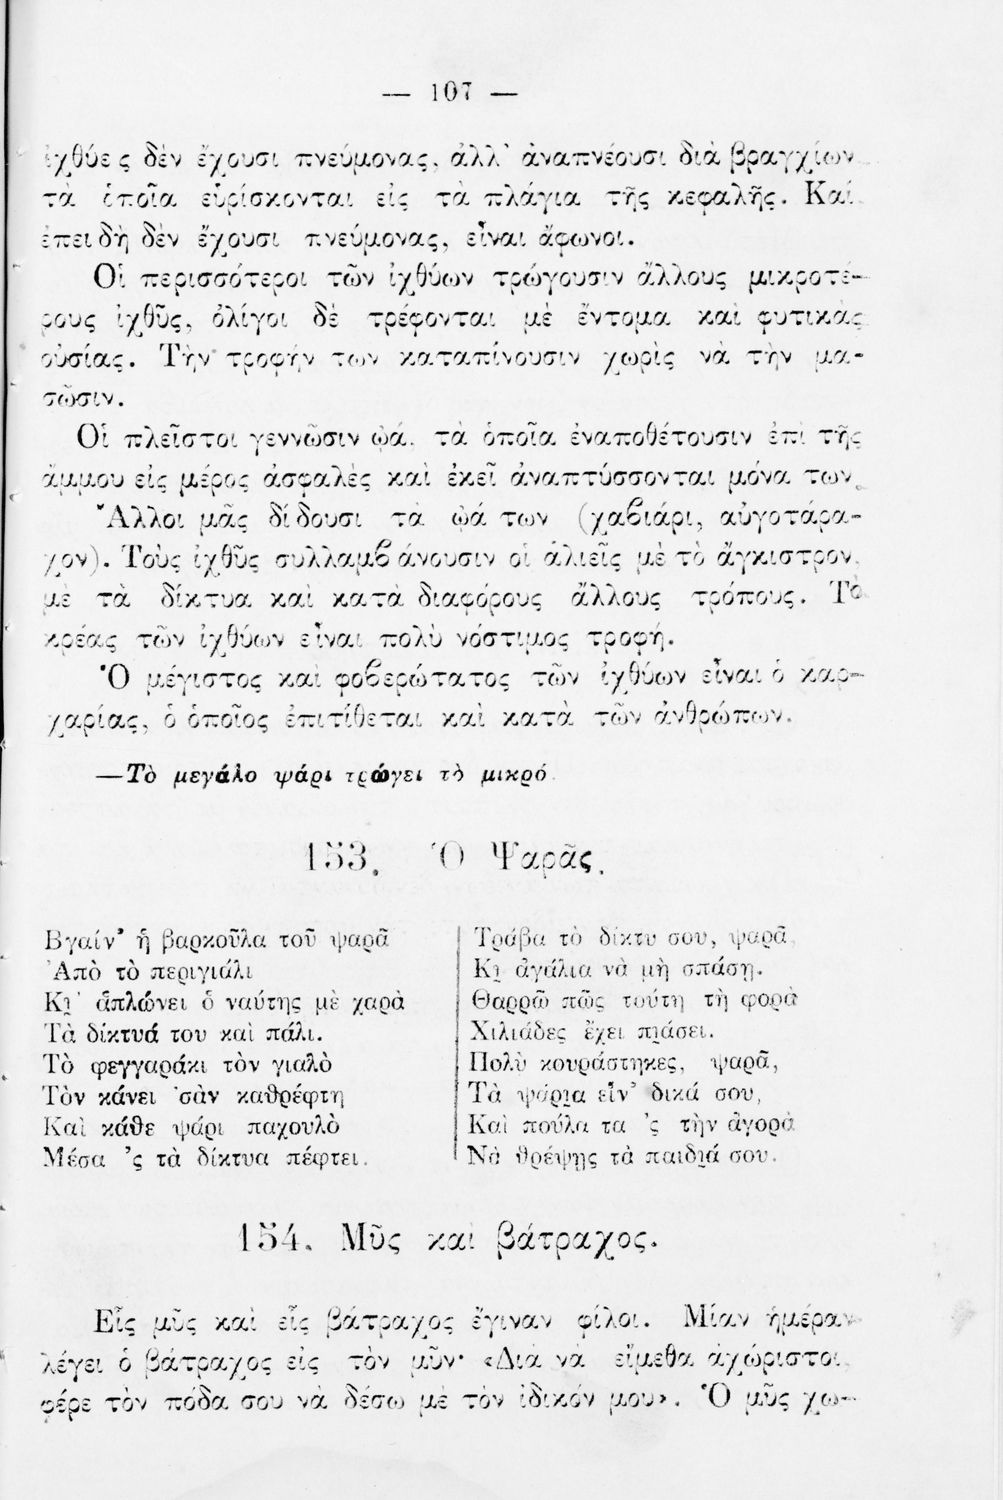 — 107 —
ἰχθύες δὲν ἔχουσι πνεύμονας, ἀλλ' ἀναπνέουσι διὰ βραγχίων
τὰ ὁποῖα εὑρίσκονται εἰς τὰ πλάγια τῆς κεφαλῆς. Καὶ
ἐπειδὴ δὲν ἔχουσι πνεύμονας, εἶναι ἄφωνοι.
Οἱ περισσότεροι τῶν ἰχθύων τρώγουσιν ἄλλους μικροτέ-
ρους ἰχθῦς, ὀλίγοι δὲ τρέφονται μὲ ἔντομα καὶ φυτικὰς
οὐσίας. Τὴν τροφήν των καταπίνουσιν χωρὶς νὰ τὴν μα-
σῶσιν.
Οἱ πλεῖστοι γεννῶσιν ᾠά, τὰ ὁποῖα ἐναποθέτουσιν ἐπὶ τῆς
ἄμμου εἰς μέρος ἀσφαλὲς καὶ ἐκεῖ ἀναπτύσσονται μόνα των.
Ἄλλοι μᾶς δίδουσι τὰ ᾠά των (χαβιάρι, αὐγοτάρα-
χον). Τοὺς ἰχθῦς συλλαμβάνουσιν οἱ ἁλιεῖς μὲ τὸ ἄγκιστρον,
μὲ τὰ δίκτυα καὶ κατὰ διαφόρους ἄλλους τρόπους. Τὸ
κρέας τῶν ἰχθύων εἶναι πολὺ νόστιμος τροφή.
Ὁ μέγιστος καὶ φοβερώτατος τῶν ἰχθύων εἶναι ὁ καρ-
χαρίας, ὁ ὁποῖος ἐπιτίθεται καὶ κατὰ τῶν ἀνθρώπων.
—Τὸ μεγάλο ψάρι τρώγει τὸ μικρό.
153. Ὁ Ψαρᾶς.
Βγαίν' ἡ βαρκοῦλα τοῦ ψαρᾶ
Ἀπὸ τὸ περιγιάλι
Κι' ἁπλώνει ὁ ναύτης μὲ χαρὰ
Τὰ δίκτυά του καὶ πάλι.
Τὸ φεγγαράκι τὸν γιαλὸ
Τὸν κάνει 'σὰν καθρέφτη
Καὶ κάθε ψάρι παχουλὸ
Μέσα 'ς τὰ δίκτυα πέφτει.
Τράβα τὸ δίκτυ σου, ψαρᾶ,
Κι ἀγάλια νὰ μὴ σπάσῃ.
Θαρρῶ πῶς τούτη τὴ φορὰ
Χιλιάδες ἔχει πιάσει.
Πολὺ κουράστηκες, ψαρᾶ,
Τὰ ψάρια εἶν' δικά σου,
Καὶ πούλα τα 'ς τὴν ἀγορὰ
Νὰ θρέψῃς τὰ παιδιά σου.
154. Μῦς καὶ βάτραχος.
Εἷς μῦς καὶ εἷς βάτραχος ἔγιναν φίλοι. Μίαν ἡμέραν
λέγει ὁ βάτραχος εἰς τὸν μῦν· «Διὰ νὰ εἴμεθα ἀχώριστοι,
φέρε τὸν πόδα σου νὰ δέσω μὲ τὸν ἰδικόν μου». Ὁ μῦς χω-